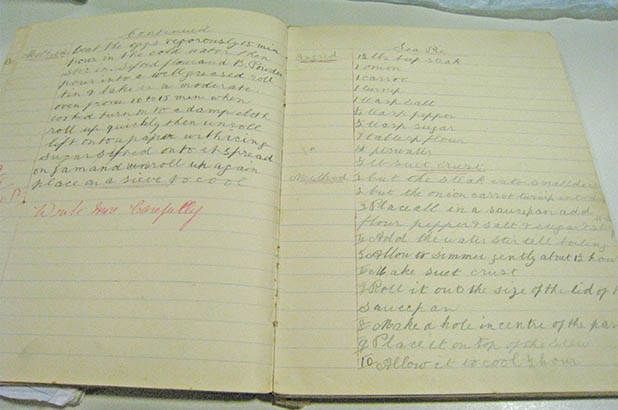 Continued
Method beat the eggs vegorously 15 min
pour in the cold water then
stir in sifted flour and B. Powder
pour into a well greased roll
tin & bake in a moderate
oven from 10 to 15 min when
cooked turn on to a damp cloth
roll up quickly then unroll
lift onto a paper with icing
sugar sifted onto it spread
on jam and unroll up again
place on a sieve to cool
Write more Carefully
Sea Pie
lbs beef steak
1 onion
1 carrot
1 turnip
1 teasp salt
teasp pepper
teasp sugar
tablesp flour
pts water
lb suet crust
Method 1 but the steak into small
2 but the onion carrot turnip into
3 Place all in a saucepan add
flour pepper & salt & sugar &
4 Add the water stir till boiling
5 Allow to simmer gently about hour
6 Make suet crust
7 Roll it out the size of the lid of
Saucepan
8 Make a hole in centre of the
9 Place it on top of the
10 Allow it to cool hour